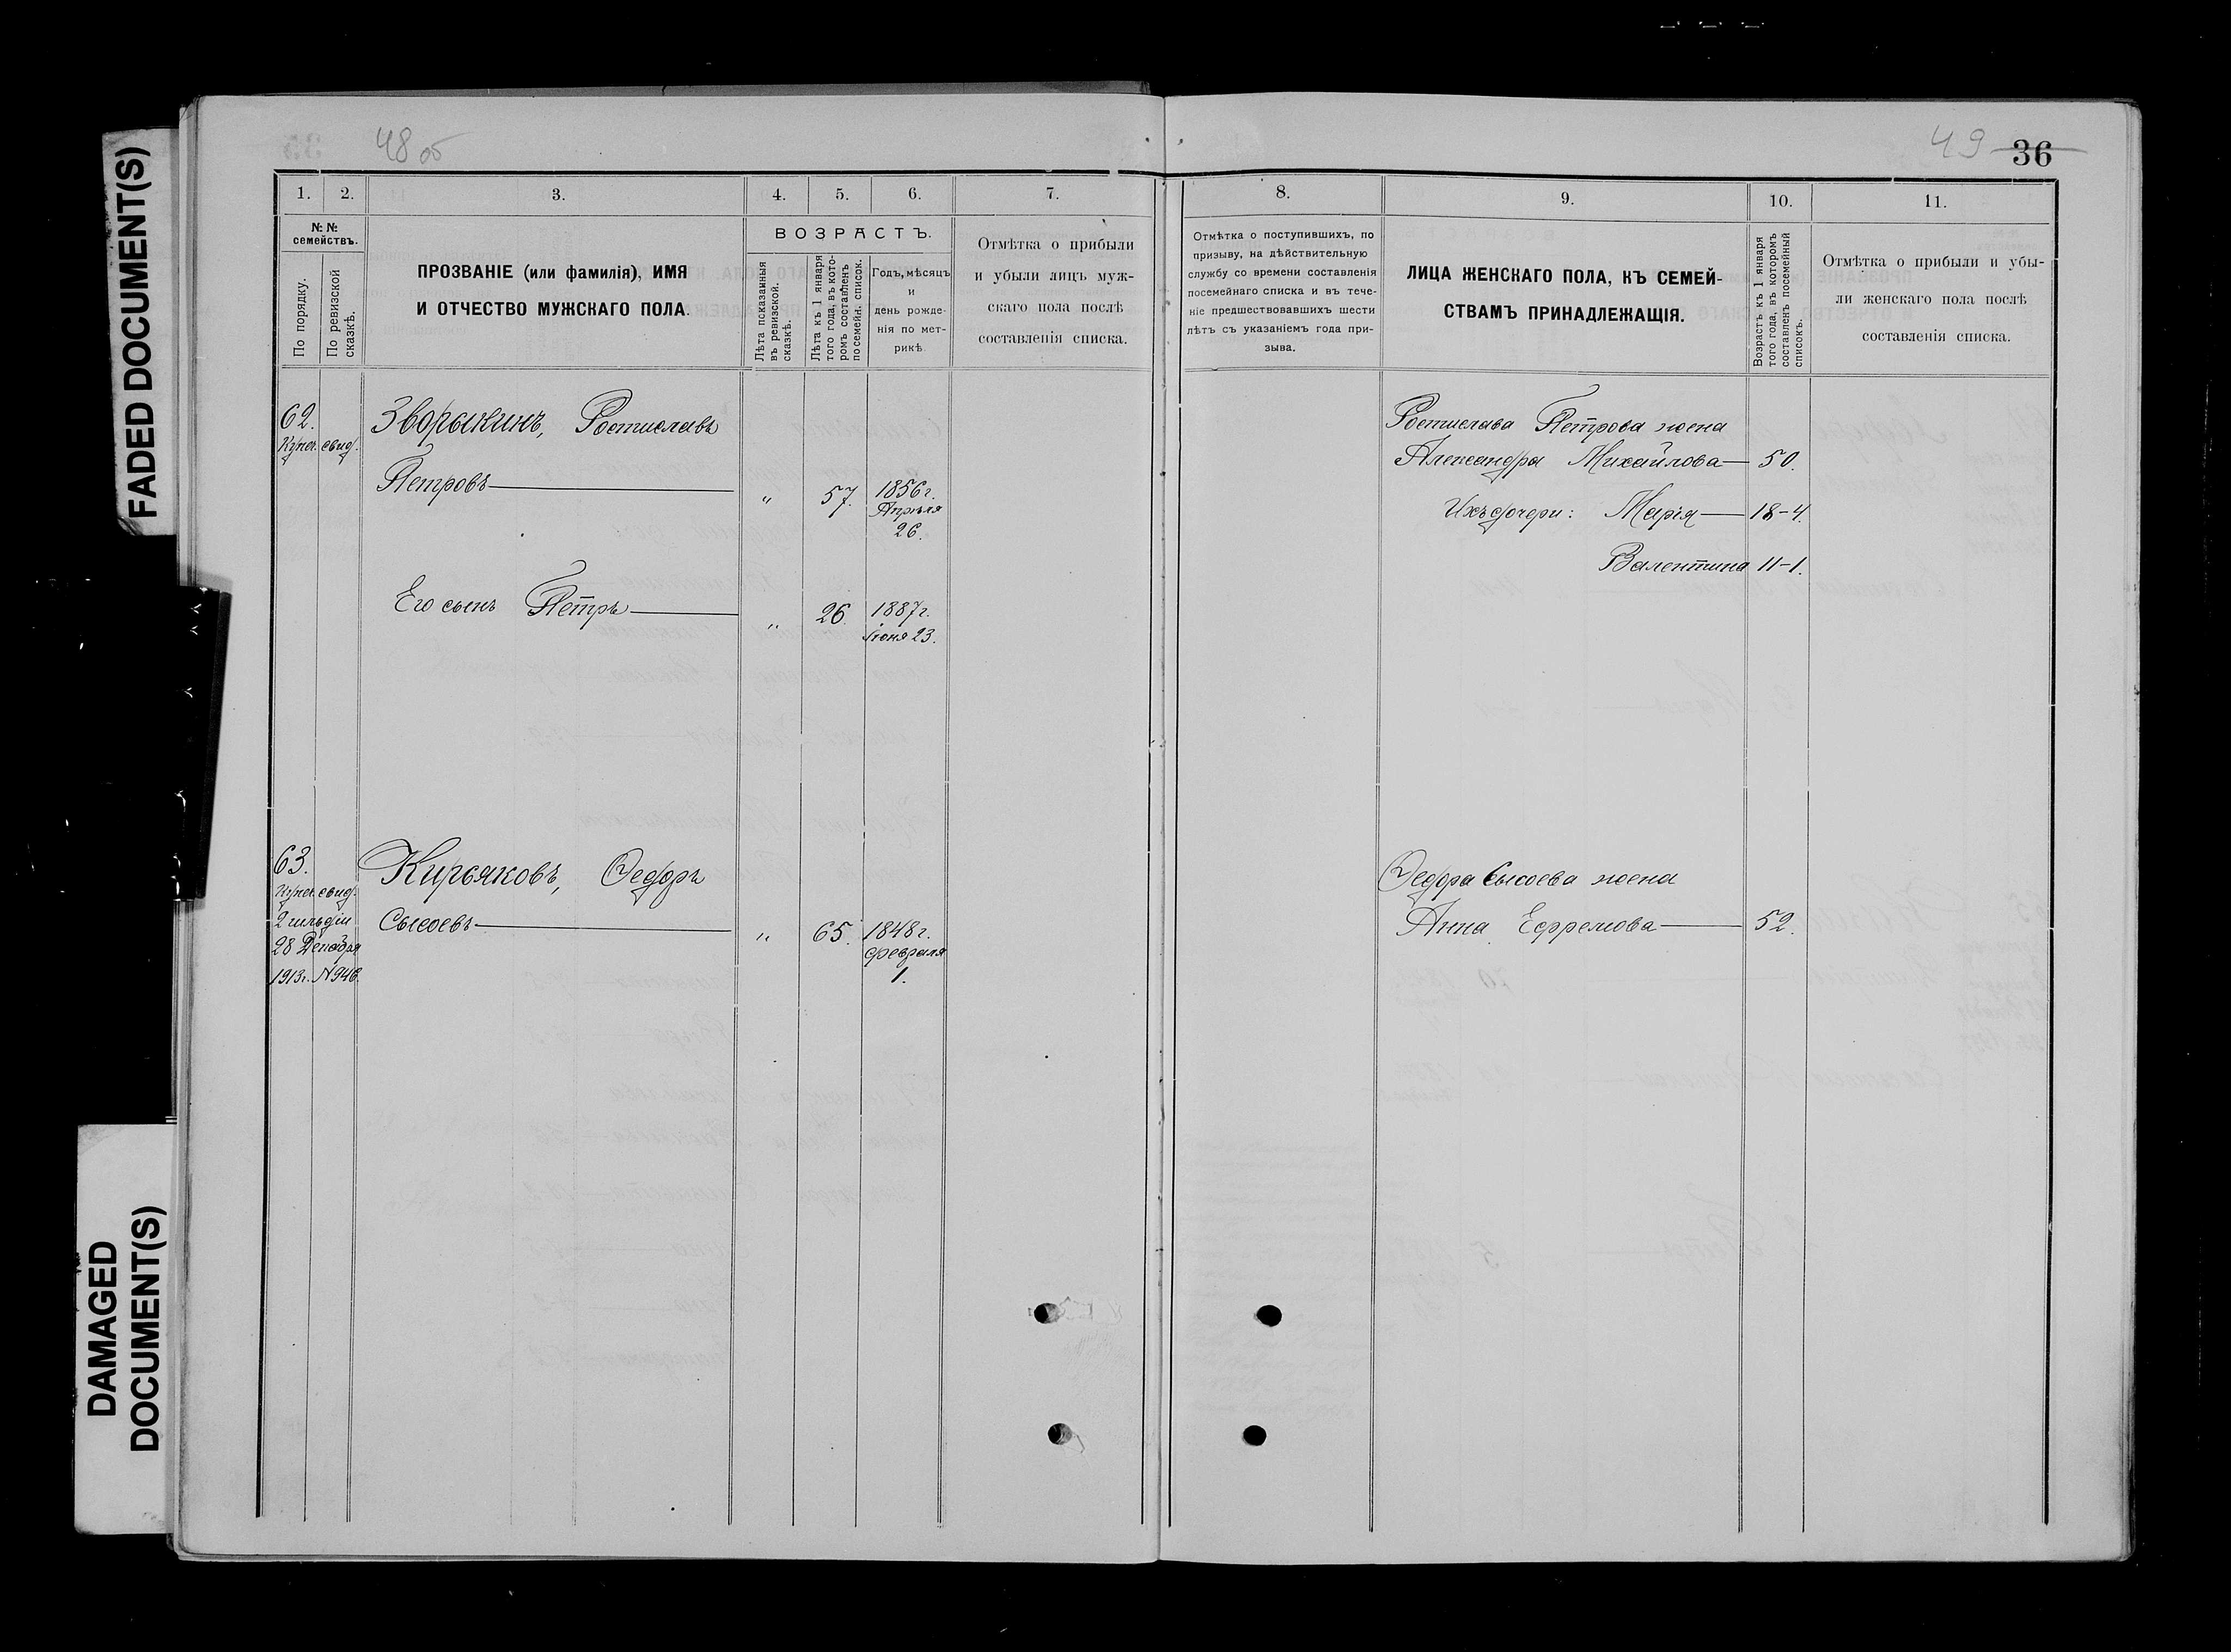 FADED DOCUMENT(S)
DAMAGED
DOCUMENT(S)
48 об
1.
2.
3.
4.
5.
6.
7.
№ №
семействъ.
По порядку.
По ревизской
сказкѣ.
ПРОЗВАНІЕ (или фамилія), ИМЯ
И ОТЧЕСТВО МУЖСКАГО ПОЛА.
ВОЗРАСТЪ.
Лѣта показанныя
въ ревизской.
сказкѣ.
Лѣта къ 1 января
того года, въ кото-
ромъ составленъ
посемейн. список.
Годъ, мѣсяцъ
и
день рожде-
нія по мет-
рикѣ
Отмѣтка о прибыли
и убыли лицъ муж-
скаго пола послѣ
составленія списка.
62.
Купеч. свид.
Зворыкинъ, Ростиславъ
Петровъ
„
57.
1856 г.
Апрѣля
26.
Его сынъ Петръ
„
26.
1887 г.
Іюня 23.
63.
Купеч. свид.
2 гильдіи
28 Декабря
1913 г. N 946.
Кирьяковъ, Ѳедоръ
Сысоевъ
„
65.
1848 г.
февраля
1.
49 36
8.
9.
10.
11.
Отмѣтка о поступившихъ, по
призыву, на дѣйствительную
службу со времени составленія
посемейнаго списка и въ тече-
ніе предшествовавшихъ шести
лѣтъ съ указаніемъ года при-
зыва.
ЛИЦА ЖЕНСКАГО ПОЛА, КЪ СЕМЕЙ-
СТВАМЪ ПРИНАДЛЕЖАЩІЯ.
Возрастъ къ 1 января
того года, въ которомъ
составленъ посемейный
списокъ.
Отмѣтка о прибыли и убы-
ли женскаго пола послѣ
составленія списка.
Ростислава Петрова жена
Александра Михайлова 50.
Ихъ дочери: Марія 18-4.
Валентина 11-1.
Ѳедора Сысоева жена
Анна Ефремова 52.